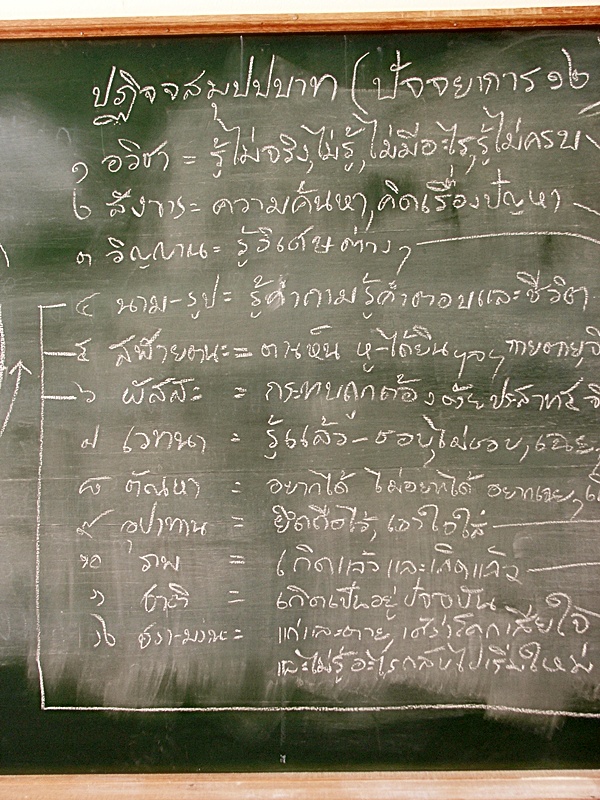 ปฏิจจสมุปปบาท (ปัจจยาการ ๑๒
๑ อวิชา = รู้ไม่จริง, ไม่รู้, ไม่มีอะไร, รู้ไม่ครบ
๒ สังขาร = ความค้นหา, คิดเรื่องปัญหา
๓ วิญญาน = รู้วิเศษต่างๆ
๔ นาม-รูป = รู้คำถามรู้คำตอบและชีวิต
๕ สฬายตนะ = ตาเห็น หู-ได้ยิน ฯลฯ
๖ ผัสสะ = กระทบถูกต้องด้วยประสาท๕
๗ เวทนา = รู้แล้ว-ชอบ, ไม่ชอบ, เฉย
๘ ตัณหา = อยากได้ ไม่อยากได้ อยากเฉย,
๙ อุปาทาน = ยึดถือไว้, เอาใจใส่
๑๐ ภพ = เกิดแล้วและเกิดแล้ว
๑๑ ชาติ = เกิดเป็นอยู่ ปัจจุบัน
๑๒ ชรา-มรณะ = แก่และตาย, เศร้าโศกเสียใจ
และไม่รู้อะไรกลับไปเริ่มใหม่